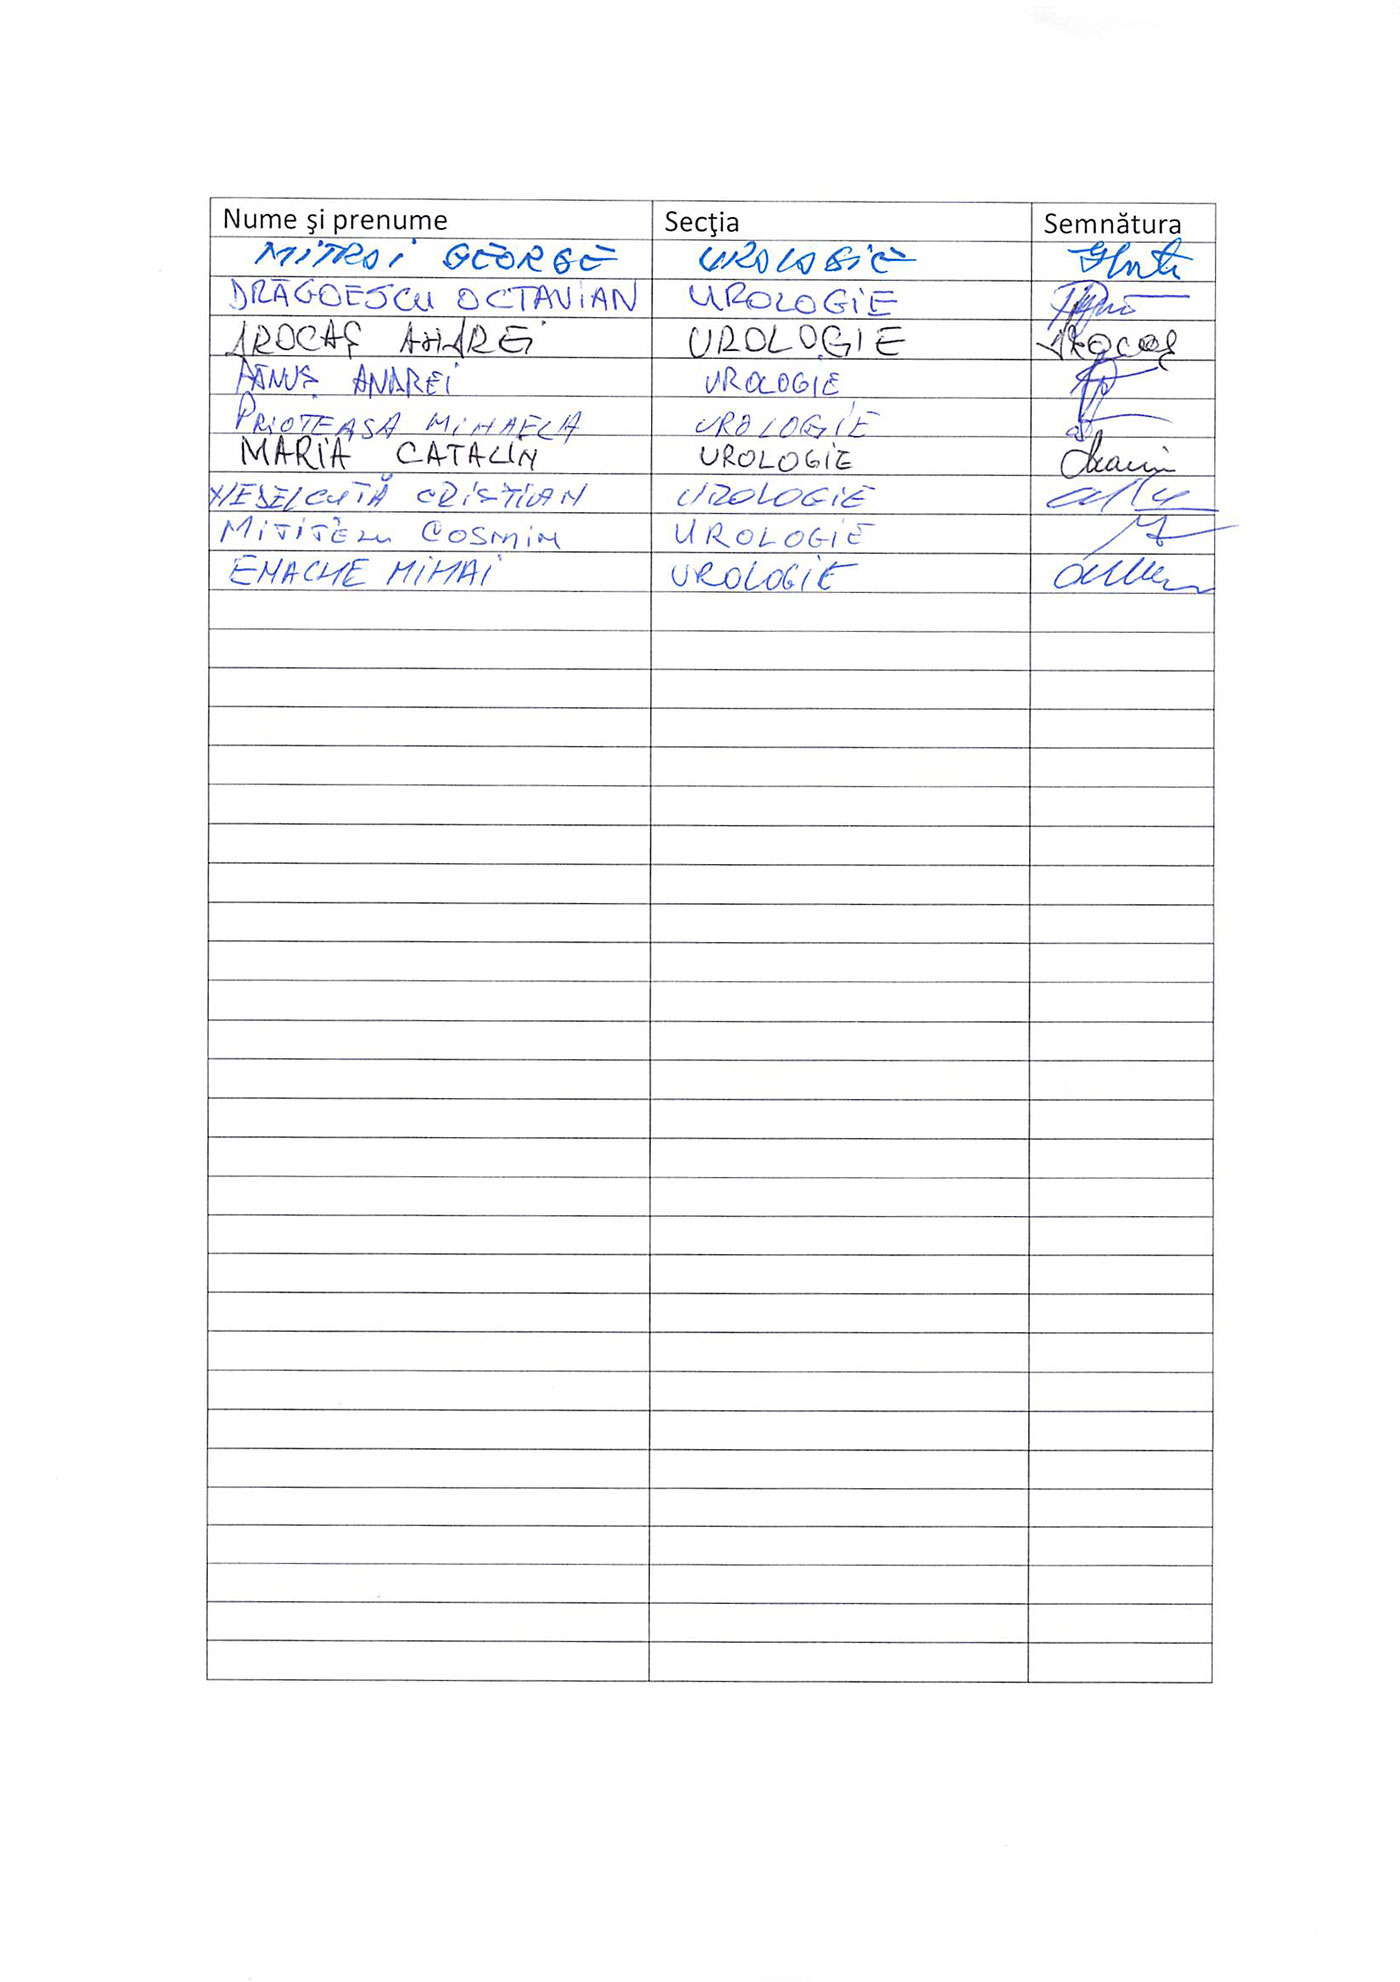 Nume şi prenume Secţia Semnătura
MITROI GEORGE UROLOGIE
DRĂGOESCU OCTAVIAN UROLOGIE
DROCAŞ ANDREI UROLOGIE Drocaş
PĂNUŞ ANDREI UROLOGIE
PRIOTEASA MIHAELA UROLOGIE
MARIA CATALIN UROLOGIE
CRISTIAN UROLOGIE
MITITELU COSMIN UROLOGIE
ENACHE MIHAI UROLOGIE